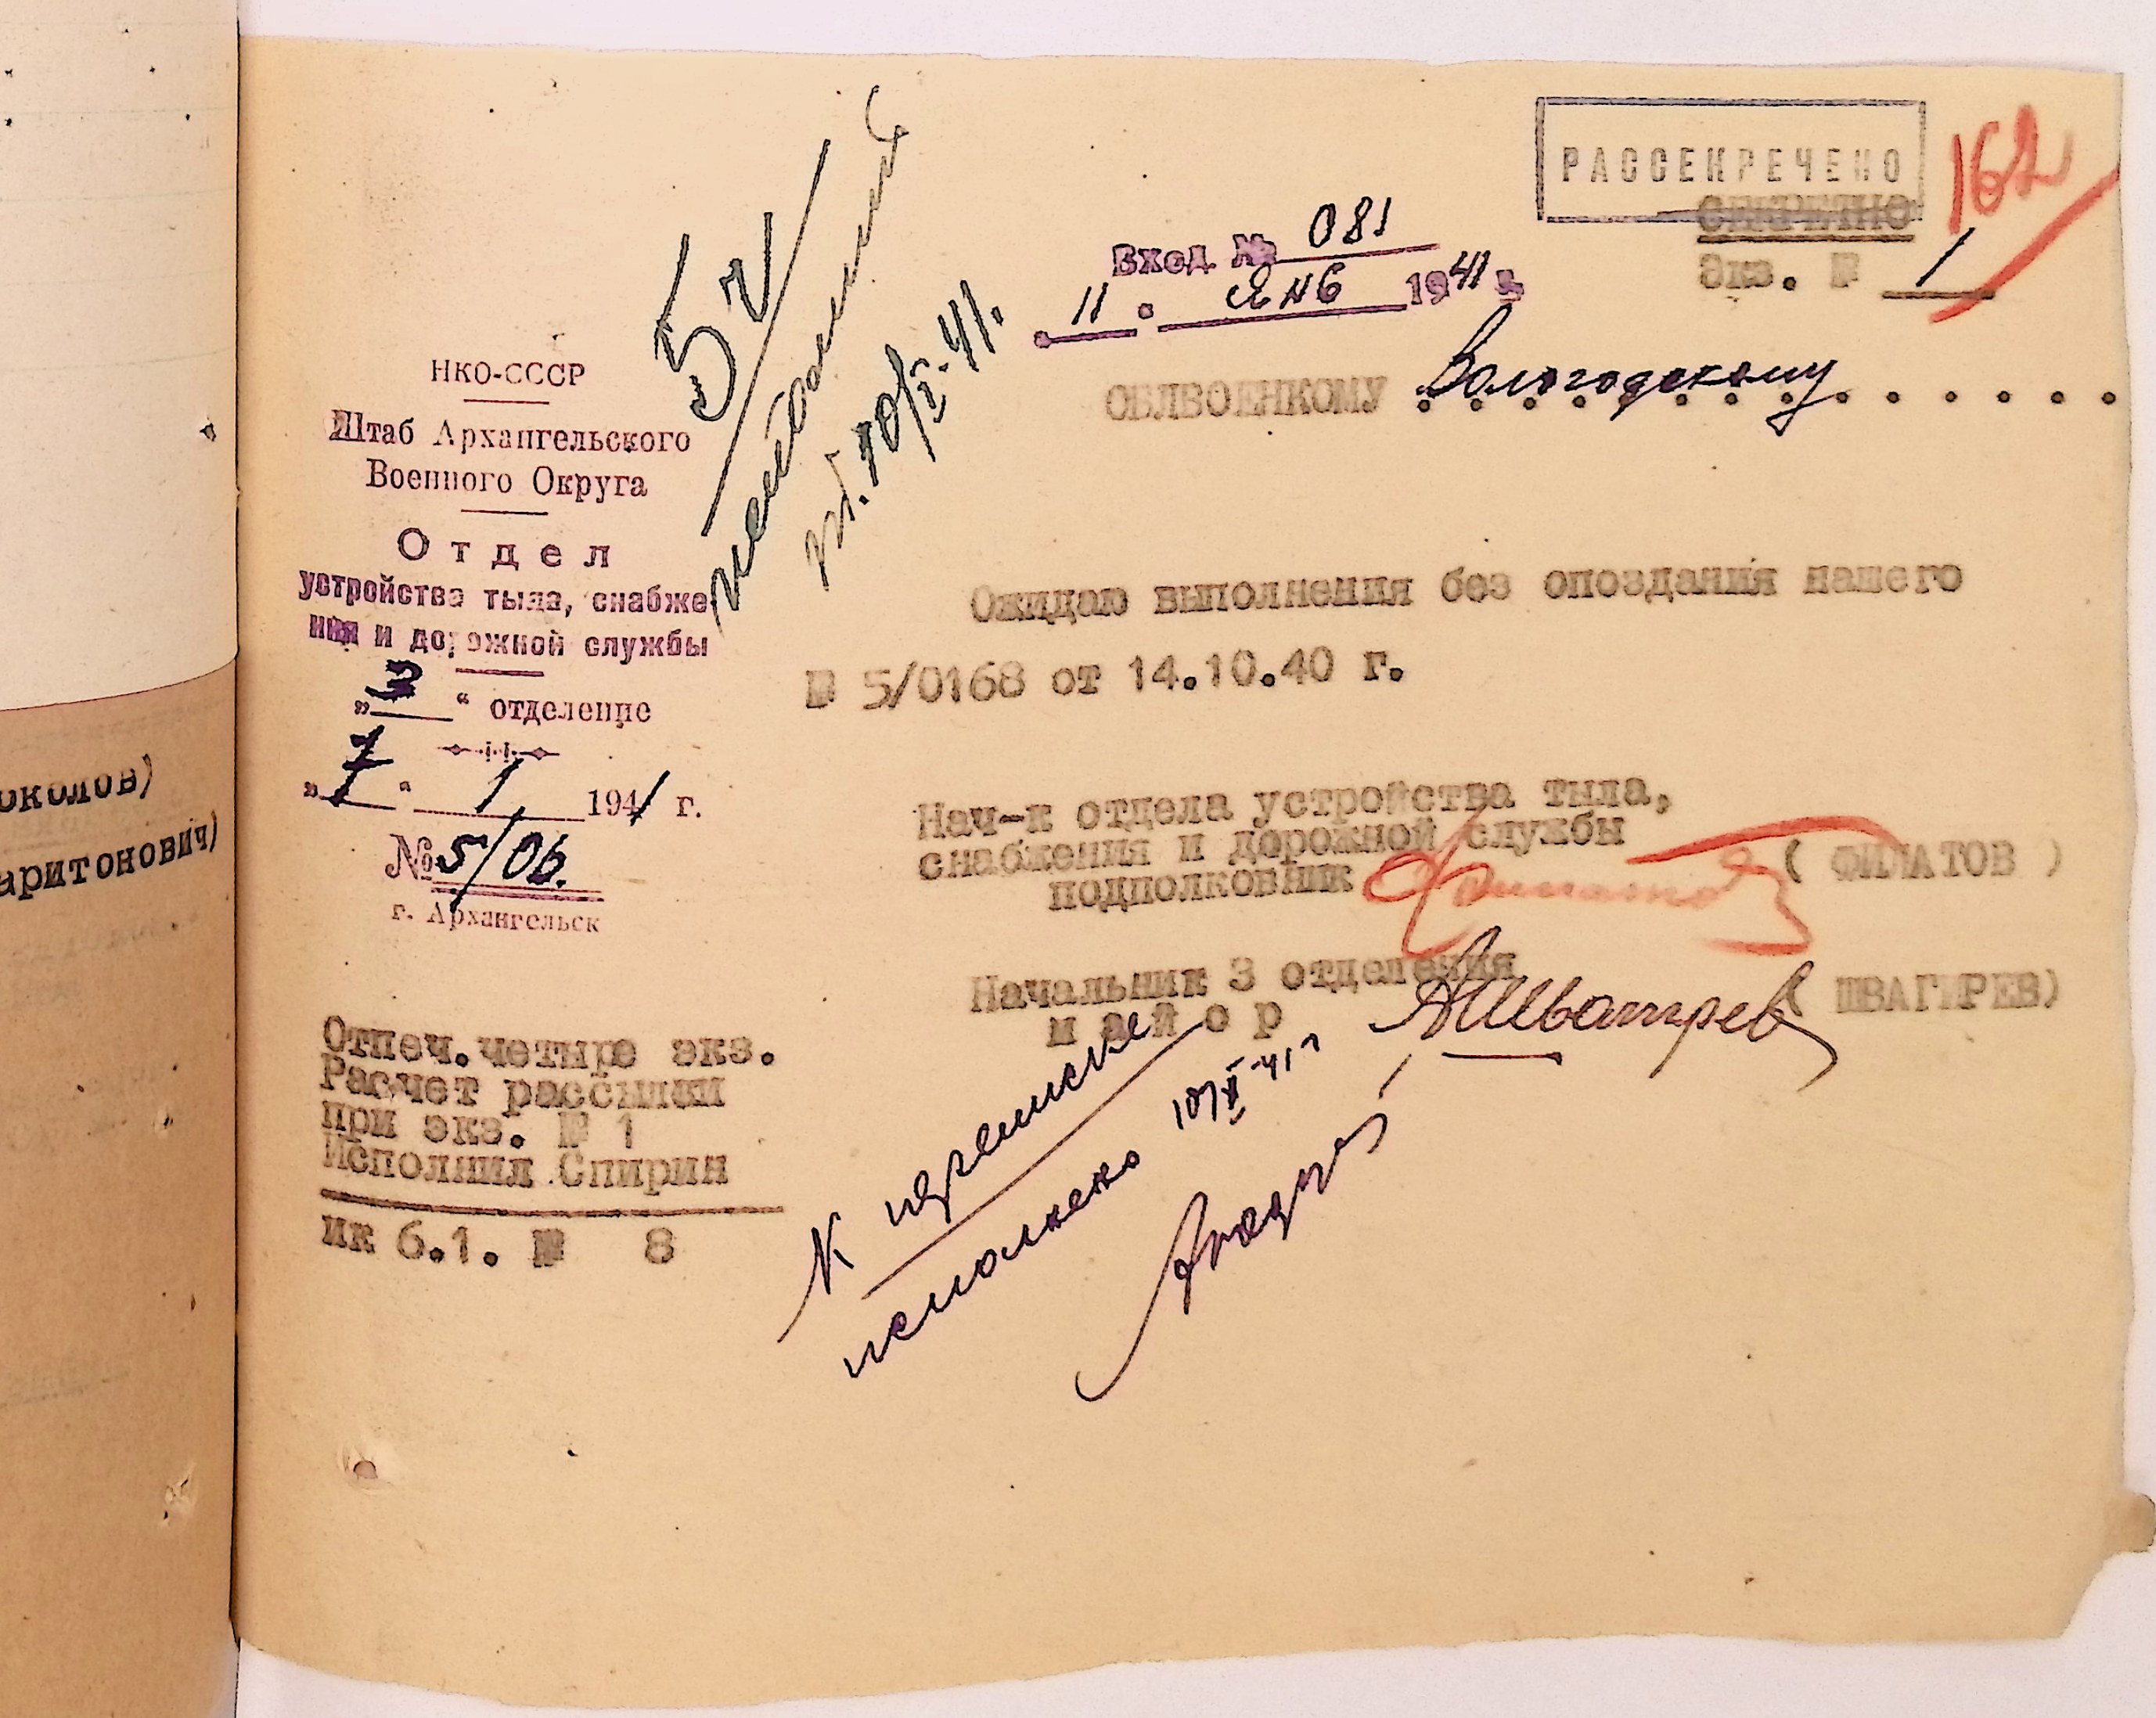 РАССЕКРЕЧЕНО
162
СЕКРЕТНО
Экз. № 1
Вход. № 081
"11" янв 1941 г.
ОБЛВОЕНКОМУ Вологодскому . . . . . .
5ч
10/I-41.
НКО-СССР
Штаб Архангельского
Военного Округа
Отдел
устройства тыла, снабже
ния и дорожной службы
„3“ отделение
„7“ 1 1941 г.
№ 5/06.
г. Архангельск
Ожидаю выполнения без опоздания нашего
№ 5/0168 от 14.10.40 г.
Нач-к отдела устройства тыла,
снабжения и дорожной службы
подполковник Филатов ( ФИЛАТОВ )
Начальник 3 отделения
майор АШвагирев ( ШВАГИРЕВ)
Отпеч.четыре экз.
Расчет рассылки
при экз. № 1
Исполнил Спирин
ик 6.1. № 8
К переписке
исполнено
околов)
аритонович)